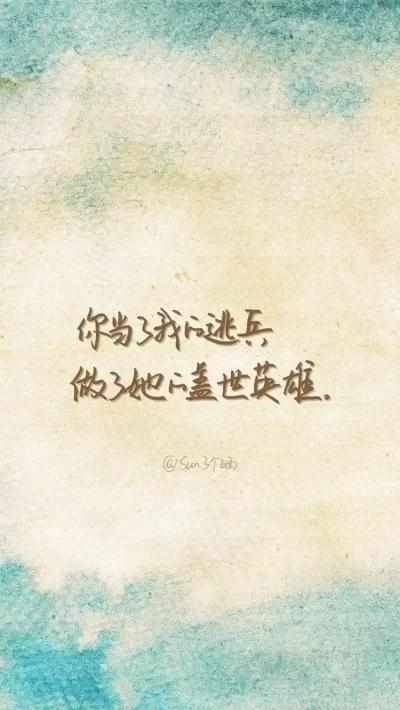 你当了我的逃兵
做了她的盖世英雄.
@Sun3个